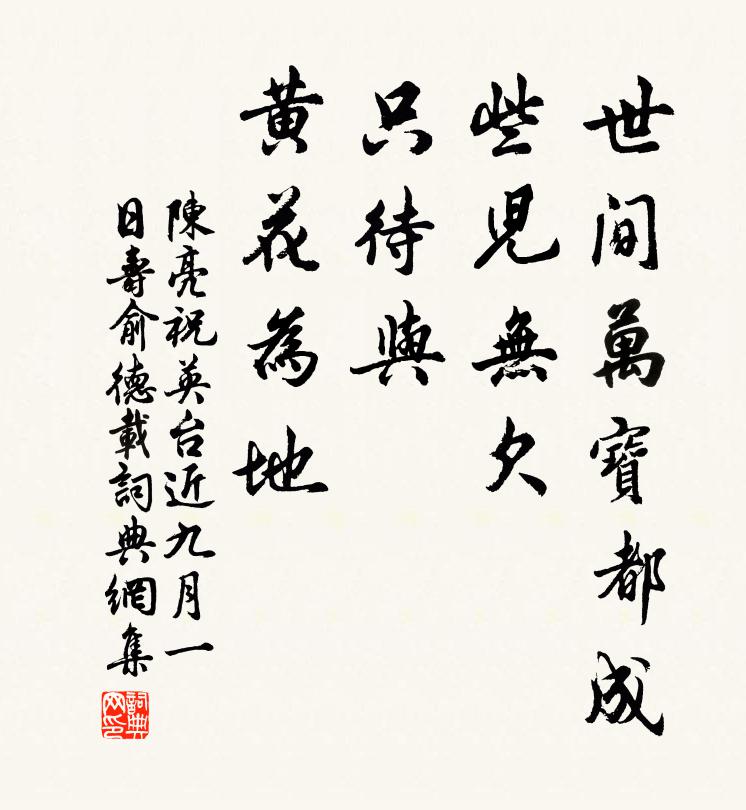 世間萬寶都成
些兒無欠
只待與
黃花為地
陳亮祝英台近九月一
日壽俞德載詞典網集
詞典网印